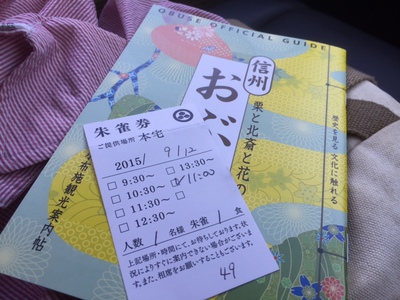 OBUSE OFFICIAL GUIDE
信州
おぶ
栗と北斎と花の
歴史を見る 文化に触れる
市施観光案内帖
朱雀券
ご提供場所 本宅
2015/ 9/12
□ 9:30～ □ 13:30～
□ 10:30～ 11:00
□ 11:30～ □
□ 12:30～
人数 1 名様 朱雀 1 食
上記場所・時間にて、お待ちしております。状
況によりすぐに案内できない場合がございま
す。また、相席をお願いすることもございます。
49